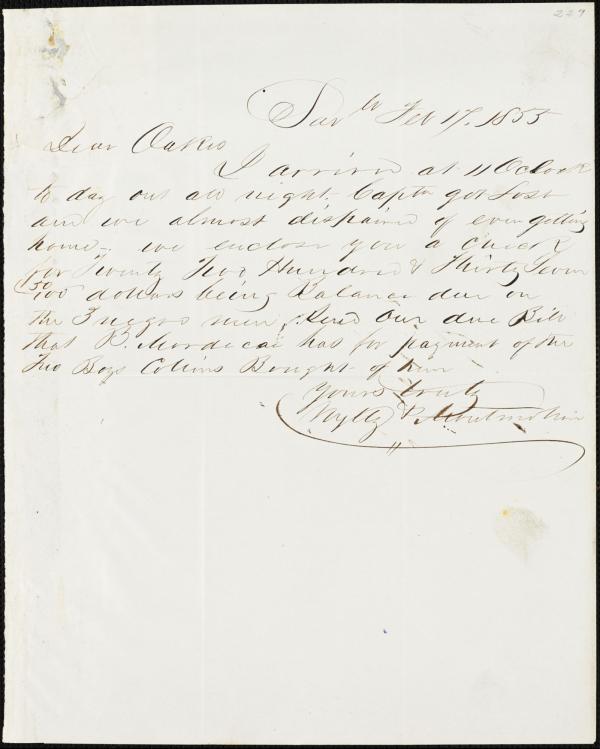 229
Savh Feb 17, 1855
Dear Oakes
I arrived at 11 OClock
to day out all night, Captn got Lost
and we almost dispaired of ever getting
home, we enclose you a check
for Twenty Two Hundred & Thirty Seven
50/100 dollars being Balance due on
the 3 negro men, Send Our due Bill
that B. Mordecai has for payment of the
Two Boys Collins Bought of him
Yours truly
Wylly & Montmollin